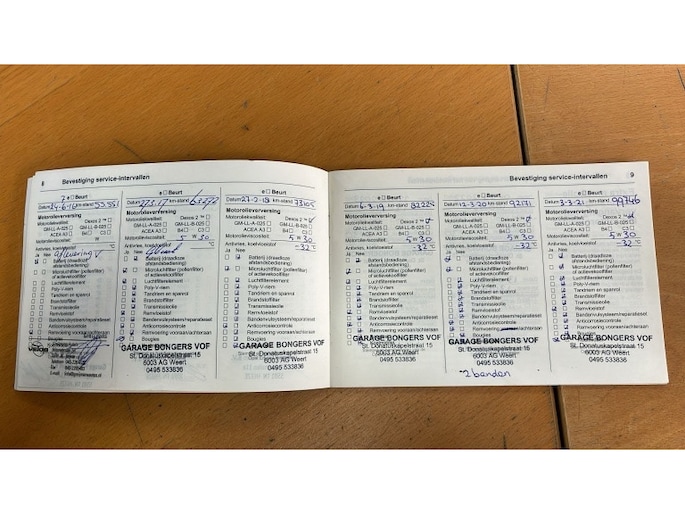 8 Bevestiging service-intervallen
2 e Beurt
Datum 24-6-16 km-stand 55551
Motorolieverversing
Motoroliekwaliteit: Dexos 2 ™
GM-LL-A-025 GM-LL-B-025
ACEA A3 B4 C3
Motorolieviscositeit: W
Antivries, koelvloeistof °C
Ja Nee
Aflevering
e Beurt
Datum 27-3-17 km-stand
Motorolieverversing
Motoroliekwaliteit: Dexos 2 ™
GM-LL-A-025 GM-LL-B-025
ACEA A3 B4 C3
Motorolieviscositeit: 5 W 30
Antivries, koelvloeistof °C
Ja Nee
Batterij (draadloze
afstandsbediening)
Microluchtfilter (pollenfilter)
of actievekoolfilter
Luchtfilterelement
Poly-V-riem
Tandriem en spanrol
Brandstoffilter
Transmissieolie
Remvloeistof
Bandenvulsysteem/reparatieset
Anticorrosiecontrole
Remvoering vooraan/achteraan
Bougies
GARAGE BONGERS VOF
St. Donatuskapelstraat 15
6003 AG Weert
0495 533836
e Beurt
Datum 27-2-18 km-stand 73105
Motorolieverversing
Motoroliekwaliteit: Dexos 2 ™
GM-LL-A-025 GM-LL-B-025
ACEA A3 B4 C3
Motorolieviscositeit: 5 W 30
Antivries, koelvloeistof -32 °C
Ja Nee
Batterij (draadloze
afstandsbediening)
Microluchtfilter (pollenfilter)
of actievekoolfilter
Luchtfilterelement
Poly-V-riem
Tandriem en spanrol
Brandstoffilter
Transmissieolie
Remvloeistof
Bandenvulsysteem/reparatieset
Anticorrosiecontrole
Remvoering vooraan/achteraan
Bougies
GARAGE BONGERS VOF
St. Donatuskapelstraat 15
6003 AG Weert
0495 533836
Bevestiging service-intervallen 9
e Beurt
Datum 6-3-19 km-stand 82224
Motorolieverversing
Motoroliekwaliteit: Dexos 2 ™
GM-LL-A-025 GM-LL-B-025
ACEA A3 B4 C3
Motorolieviscositeit: 5 W 30
Antivries, koelvloeistof -32 °C
Ja Nee
Batterij (draadloze
afstandsbediening)
Microluchtfilter (pollenfilter)
of actievekoolfilter
Luchtfilterelement
Poly-V-riem
Tandriem en spanrol
Brandstoffilter
Transmissieolie
Remvloeistof
Bandenvulsysteem/reparatieset
Anticorrosiecontrole
Remvoering vooraan/achteraan
GARAGE BONGERS VOF
St. Donatuskapelstraat 15
6003 AG Weert
0495 533836
e Beurt
Datum 12-3-20 km-stand 92171
Motorolieverversing
Motoroliekwaliteit: Dexos 2 ™
GM-LL-A-025 GM-LL-B-025
ACEA A3 B4 C3
Motorolieviscositeit: 5 W 30
Antivries, koelvloeistof -32 °C
Ja Nee
Batterij (draadloze
afstandsbediening)
Microluchtfilter (pollenfilter)
of actievekoolfilter
Luchtfilterelement
Poly-V-riem
Tandriem en spanrol
Brandstoffilter
Transmissieolie
Remvloeistof
Bandenvulsysteem/reparatieset
Anticorrosiecontrole
GARAGE BONGERS VOF
St. Donatuskapelstraat 15
6003 AG Weert
0495 533836
2 banden
e Beurt
Datum 3-3-21 km-stand 99746
Motorolieverversing
Motoroliekwaliteit: Dexos 2 ™
GM-LL-A-025 GM-LL-B-025
ACEA A3 B4 C3
Motorolieviscositeit: 5 W 30
Antivries, koelvloeistof -32 °C
Ja Nee
Batterij (draadloze
afstandsbediening)
Microluchtfilter (pollenfilter)
of actievekoolfilter
Luchtfilterelement
Poly-V-riem
Tandriem en spanrol
Brandstoffilter
Transmissieolie
Remvloeistof
Bandenvulsysteem/reparatieset
Anticorrosiecontrole
Remvoering vooraan/achteraan
Bougies
GARAGE BONGERS VOF
St. Donatuskapelstraat 15
6003 AG Weert
0495 533836